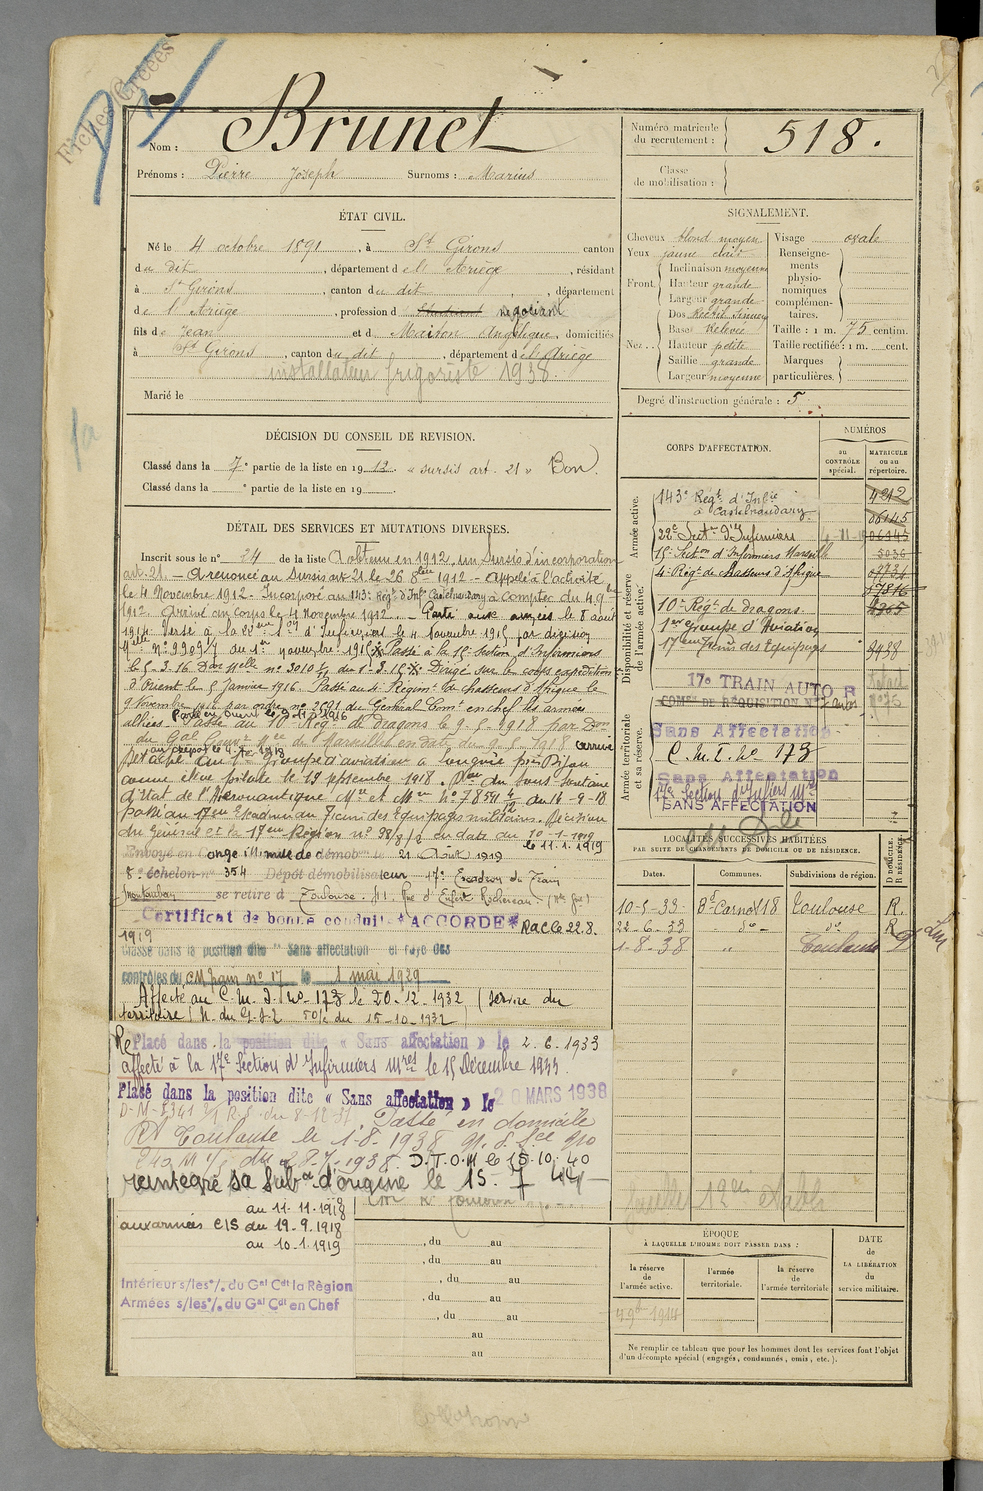 Fiches Créées
Nom : Brunet
Prénoms : Pierre Joseph Surnoms : Marius
Numéro matricule du recrutement : 518.
Classe de mobilisation :
ÉTAT CIVIL.
Né le 4 octobre 1891, à St Girons canton
du dit, département de l' Ariège, résidant
à St Girons, canton du dit, département
de l' Ariège, profession d négociant
fils de Jean et d Maison Angélique, domiciliés
à St Girons, canton du dit, département de l'Ariège
installateur frigoriste 1938.
Marié le
SIGNALEMENT.
Cheveux blond moyen
Yeux jaune clair
Front. Inclinaison moyenne
Hauteur grande
Largeur grande
Nez. Dos Rectil. Sinueux
Base Relevée
Hauteur petite
Saillie grande
Largeur moyenne
Visage ovale
Renseignements physionomiques complémentaires.
Taille : 1 m. 75 centim.
Taille rectifiée : 1 m. cent.
Marques particulières.
Degré d'instruction générale : 5
DÉCISION DU CONSEIL DE REVISION.
Classé dans la 7e partie de la liste en 1912. « sursis art. 21 » Bon.
Classé dans la e partie de la liste en 19
DÉTAIL DES SERVICES ET MUTATIONS DIVERSES.
Inscrit sous le n° 24 de la liste A obtenu en 1912, un Sursis d'incorporation
art. 21. — A renoncé au Sursis art 21. le 26 8bre 1912 — Appelé à l'activité
le 4 Novembre 1912 - Incorporé au 143e Régt d'Infie Castelnaudary à compter du 4 9bre
1912. Arrivé au corps le 4 Novembre 1912. — Parti aux armées le 8 août
1914. Versé à la 22eme Son d'Infirmiers le 4 Novembre 1915 par décision
Melle n° 9309/7 du 1er novembre 1915. Passé à la 15e Section d'Infirmiers
le 5. 3. 16 Don Melle n° 3010 du 1.3.15. Dirigé sur le corps expéditionre
d'Orient le 5 janvier 1916. Passé au 4e Régimt de chasseurs d'Afrique le
9 Novembre 1916 par ordre n° 2591 du Général Comt en chef les armées
alliées.
Passé au 10e Régt de Dragons le 9. 5. 1918 par Don
du Gal Gouvr Mre de Marseille en date du 9. 5. 1918
Passé au 1er Groupe d'aviation à Longvic près Dijon
comme élève pilote le 19 septembre 1918. Don du Sous Secrétaire
d'Etat de l'Aéronautique Mre et Mme N° 78541 4/12 du 16-9-18
passé au 17eme Escadron du Train des Equipages militaires. Décision
du Général Ct la 17eme Région n° 98/8/2 en date du 10-1-1919
le 11.1.1919
Envoyé en congé illimité de démobon le 21 Août 1919
8e échelon n° 354 Dépôt démobilisateur 17e Escadron du Train
Montauban se retire à Toulouse. 41 Rue d'Enfert Rochereau.
Certificat de bonne conduite ACCORDÉ RacLe 22.8.
1919
Classé dans la position dite " Sans affectation " et rayé des
contrôles du CM train n° 17 le 1 mai 1929
Affecté au C. M. I. No 173 le 20-12-1932 (Service du
territoire) N. du G.I.L 50/c du 15-10-1932)
Re Placé dans la position dite « Sans affectation » le 2. 6. 1933
affecté à la 17e Section d'Infirmiers Mres le 15 Décembre 1933.
Placé dans la position dite « Sans affectation » le 20 MARS 1938
Passé en domicile
Rt Toulouse le 1.8.1938
du 28.7.1938. D.T.O.M le 15.10.40
réintegré sa Subon d'origine le 15. 7 44
au 11.11.1918
aux armées CIS du 19.9.1918
au 10.1.1919
Intérieur s/les °/. du Gal Cdt la Règion
Armées s/les °/. du Gal Cdt en Chef
, du au
, du au
, du au
, du au
, du au
au
au
CORPS D'AFFECTATION.
NUMÉROS
au CONTRÔLE spécial.
MATRICULE ou au répertoire.
Armée active.
143e Régt d'Infie à Castelnaudary. 4212
06145
22e Sectn d'Infirmiers 4-11-15 06145
15e Section d'Infirmiers Marseille 5036
Disponibilité et réserve de l'armée active.
4e Régt de chasseurs d'Afrique
10e Régt de dragons.
1er Groupe d'Aviation
17eme Train des Equipages 3438
Armée territoriale et sa réserve.
17e TRAIN AUTO R
COMon DE RÉQUISITION N°
Sans Affectation
C. M. I. No 173
Sans Affectation
17e Section d'Infiers Mres
SANS AFFECTATION
LOCALITÉS SUCCESSIVES HABITÉES
PAR SUITE DE CHANGEMENTS DE DOMICILE OU DE RÉSIDENCE.
Dates. Communes. Subdivisions de région. D DOMICILE. R RÉSIDENCE.
10-5-33 Bd Carnot 18 Toulouse R.
22-6-33 - do - do R
1-8-38 " Toulouse D
ÉPOQUE
À LAQUELLE L'HOMME DOIT PASSER DANS :
la réserve de l'armée active.
l'armée territoriale.
la réserve de l'armée territoriale
DATE de LA LIBÉRATION du service militaire.
4 9bre 1914
Ne remplir ce tableau que pour les hommes dont les services font l'objet
d'un décompte spécial (engagés, condamnés, omis, etc.).